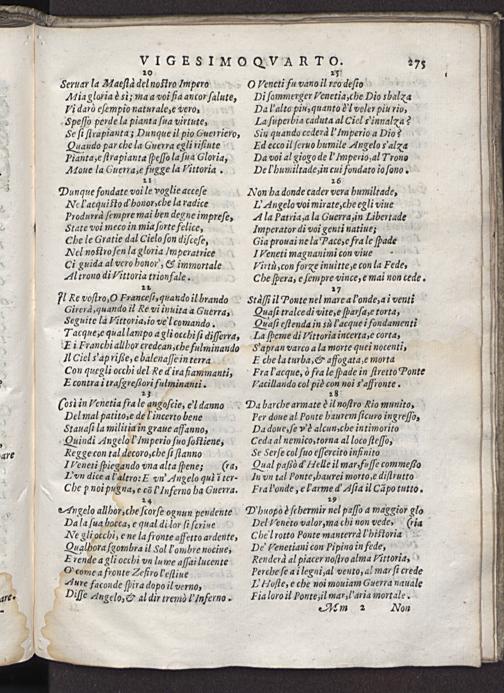 VIGESIMOQVARTO. 275
20
Seruar la Maestà del nostro Impero
Mia gloria è sì; ma a voi fia ancor salute,
Vi darò esempio naturale, e vero,
Spesso perde la pianta sua virtute,
Se si strapianta; Dunque il pio Guerriero,
Quando par che la Guerra egli rifiute
Pianta, e strapianta spesso la sua Gloria,
Moue la Guerra, e fugge la Vittoria.
21
Dunque fondate voi le voglie accese
Ne l'acquisto d'honor, che la radice
Produrrà sempre mai ben degne imprese,
State voi meco in mia sorte felice,
Che le Gratie dal Cielo son discese,
Nel nostro sen la gloria Imperatrice
Ci guida al vero honor', & immortale
Al trono di Vittoria trionfale.
22
Il Re vostro, O Francesi, quando il brando
Girerà, quando il Re vi inuita a Guerra,
Seguite la Vittoria, io ve'l comando.
Tacque; e qual lampo a gli occhi si disserra,
E i Franchi allhor credean, che fulminando
Il Ciel s'aprisse, e balenasse in terra
Con quegli occhi del Re d'ira fiammanti,
E contra i trasgressori fulminanti.
23
Così in Venetia fra le angoscie, e'l danno
Del mal patito, e de l'incerto bene
Stauasi la militia in graue affanno,
Quindi Angelo l'Imperio suo sostiene,
Regge con tal decoro, che si stanno
I Veneti spiegando vna alta spene; (ra,
L'vn dice a l'altro: E vn' Angelo quì 'i ter-
Che p noi pugna, e cō l'Inferno ha Guerra.
24
Angelo allhor, che scorse ognun pendente
Da la sua bocca, e qual di lor si scriue
Ne gli occhi, e ne la fronte affetto ardente,
Qualhora sgombra il Sol l'ombre nociue,
E rende a gli occhi vn lume assai lucente
O come a fronte Zefiro l'estiue
Aure faconde spira dopo il verno,
Disse Angelo, & al dir tremò l'Inferno.
25
O Veneti fu vano il reo desio
Di sommerger Venetia, che Dio sbalza
Da l'alto più, quanto è'l veler più rio,
La superbia caduta al Ciel s'innalza?
Sin quando cederà l'Imperio a Dio?
Ed ecco il seruo humile Angelo s'alza
Da voi al giogo de l'Imperio, al Trono
De l'humiltade, in cui fondato io sono.
26
Non ha donde cader vera humiltade,
L'Angelo voi mirate, che egli viue
A la Patria, a la Guerra, in Libertade
Imperator di voi genti natiue;
Gia prouai ne la Pace, e fra le spade
I Veneti magnanimi con viue
Virtù, con forze inuitte, e con la Fede,
Che spera, e sempre vince, e mai non cede.
27
Stassi il Ponte nel mare a l'onde, a i venti
Quasi tralce di vite, e sparsa, e torta,
Quasi estenda in sù l'acque i fondamenti
La speme di Vittoria incerta, e corta,
S'apran varco a la morte quei nocenti,
E che la turba, & affogata, e morta
Fra l'acque, ò fra le spade in stretto Ponte
Vacillando col piè con noi s'affronte.
28
Da barche armate è il nostro Rio munito,
Per doue al Ponte haurem sicuro ingresso,
Da doue, se v'è alcun, che intimorito
Ceda al nemico, torna al loco stesso,
Se Serse col suo essercito infinito
Qual passò d'Helle il mar, fusse commesso
In vn tal Ponte, haurei morto, e distrutto
Fra l'onde, e l'arme d'Asia il Cāpo tutto.
29
D'huopo è schermir nel passo a maggior glo
Del Veneto valor, ma chi non vede, (ria
Che'l rotto Ponte manterrà l'historia
De' Venetiani con Pipino in fede,
Renderà al piacer nostro alma Vittoria,
Perche se a i legni, al vento, al mar si crede
L'Hoste, e che noi mouiam Guerra nauale
Fia loro il Ponte, il mar, l'aria mortale.
Mm 2 Non